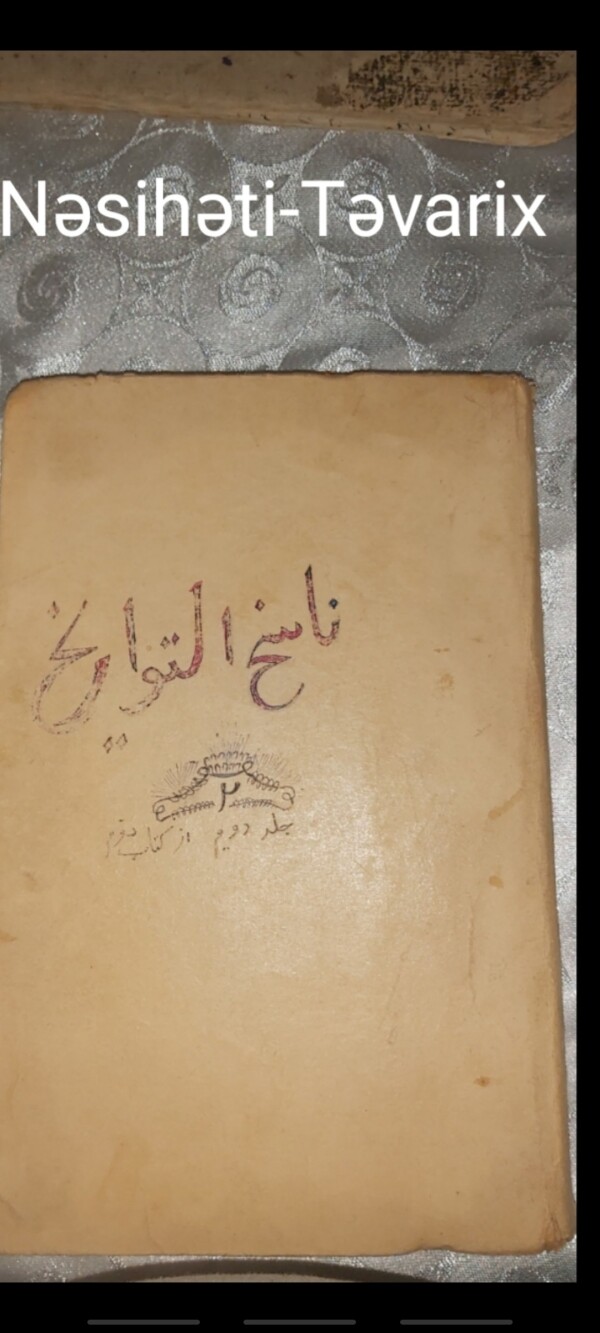 Nəsihəti-Təvarix
ناسخ التواریخ
۲
جلد دویم از کتاب دوم